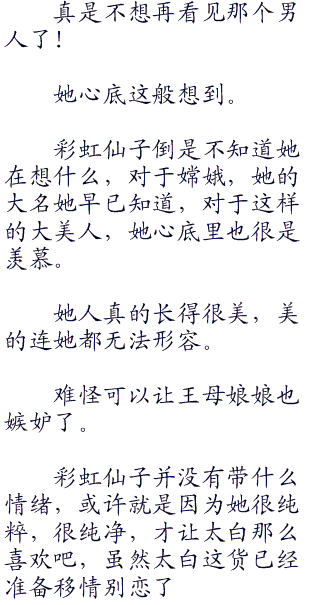 真是不想再看见那个男
人了！
她心底这般想到。
彩虹仙子倒是不知道她
在想什么，对于嫦娥，她的
大名她早已知道，对于这样
的大美人，她心底里也很是
羡慕。
她人真的长得很美，美
的连她都无法形容。
难怪可以让王母娘娘也
嫉妒了。
彩虹仙子并没有带什么
情绪，或许就是因为她很纯
粹，很纯净，才让太白那么
喜欢吧，虽然太白这货已经
准备移情别恋了